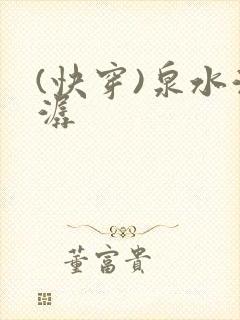 (快穿)泉水
潺
董富貴